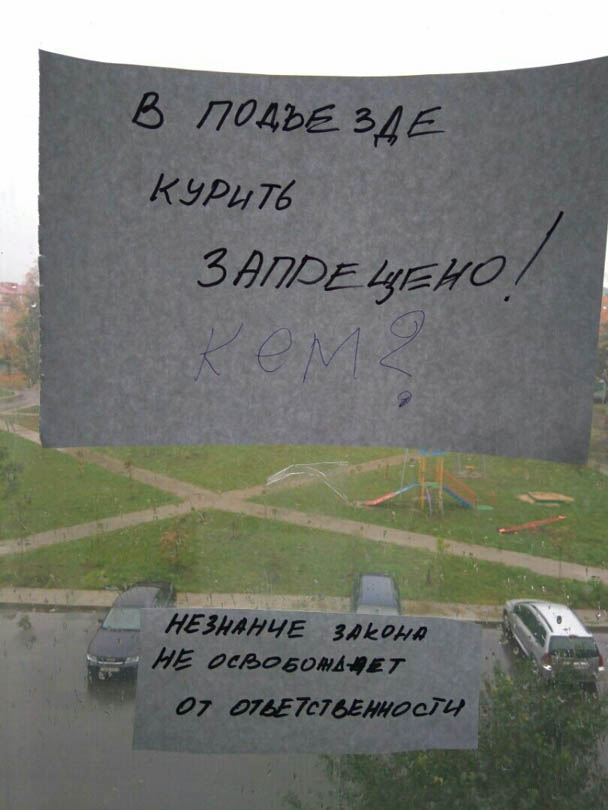 В ПОДЪЕЗДЕ
КУРИТЬ
ЗАПРЕЩЕНО!
кем?
НЕЗНАНИЕ ЗАКОНА
НЕ ОСВОБОЖДАЕТ
ОТ ОТВЕТСТВЕННОСТИ